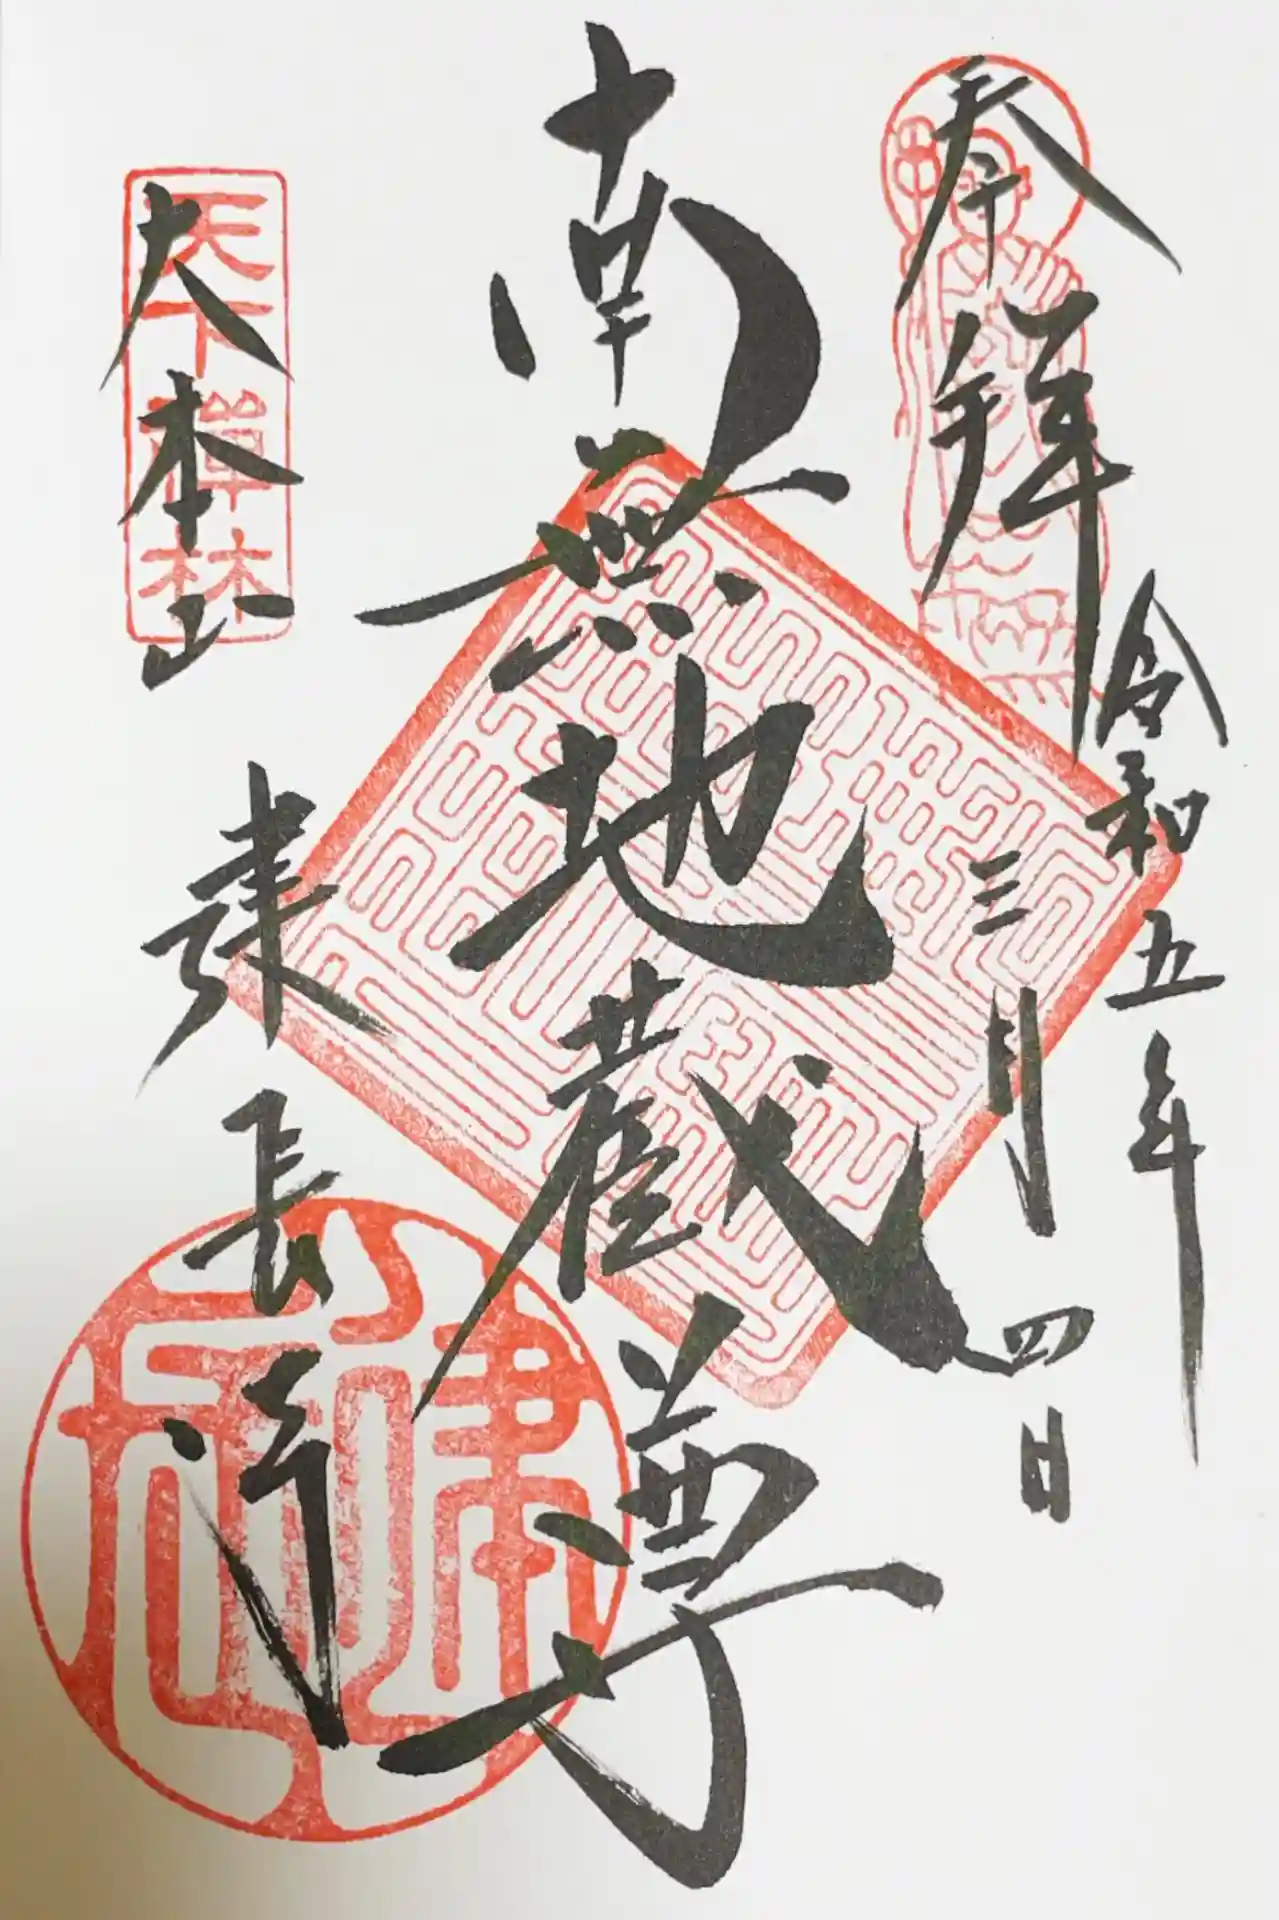 奉拝
令和五年
三月四日
南無地蔵尊
天下禅林
大本山
建長寺